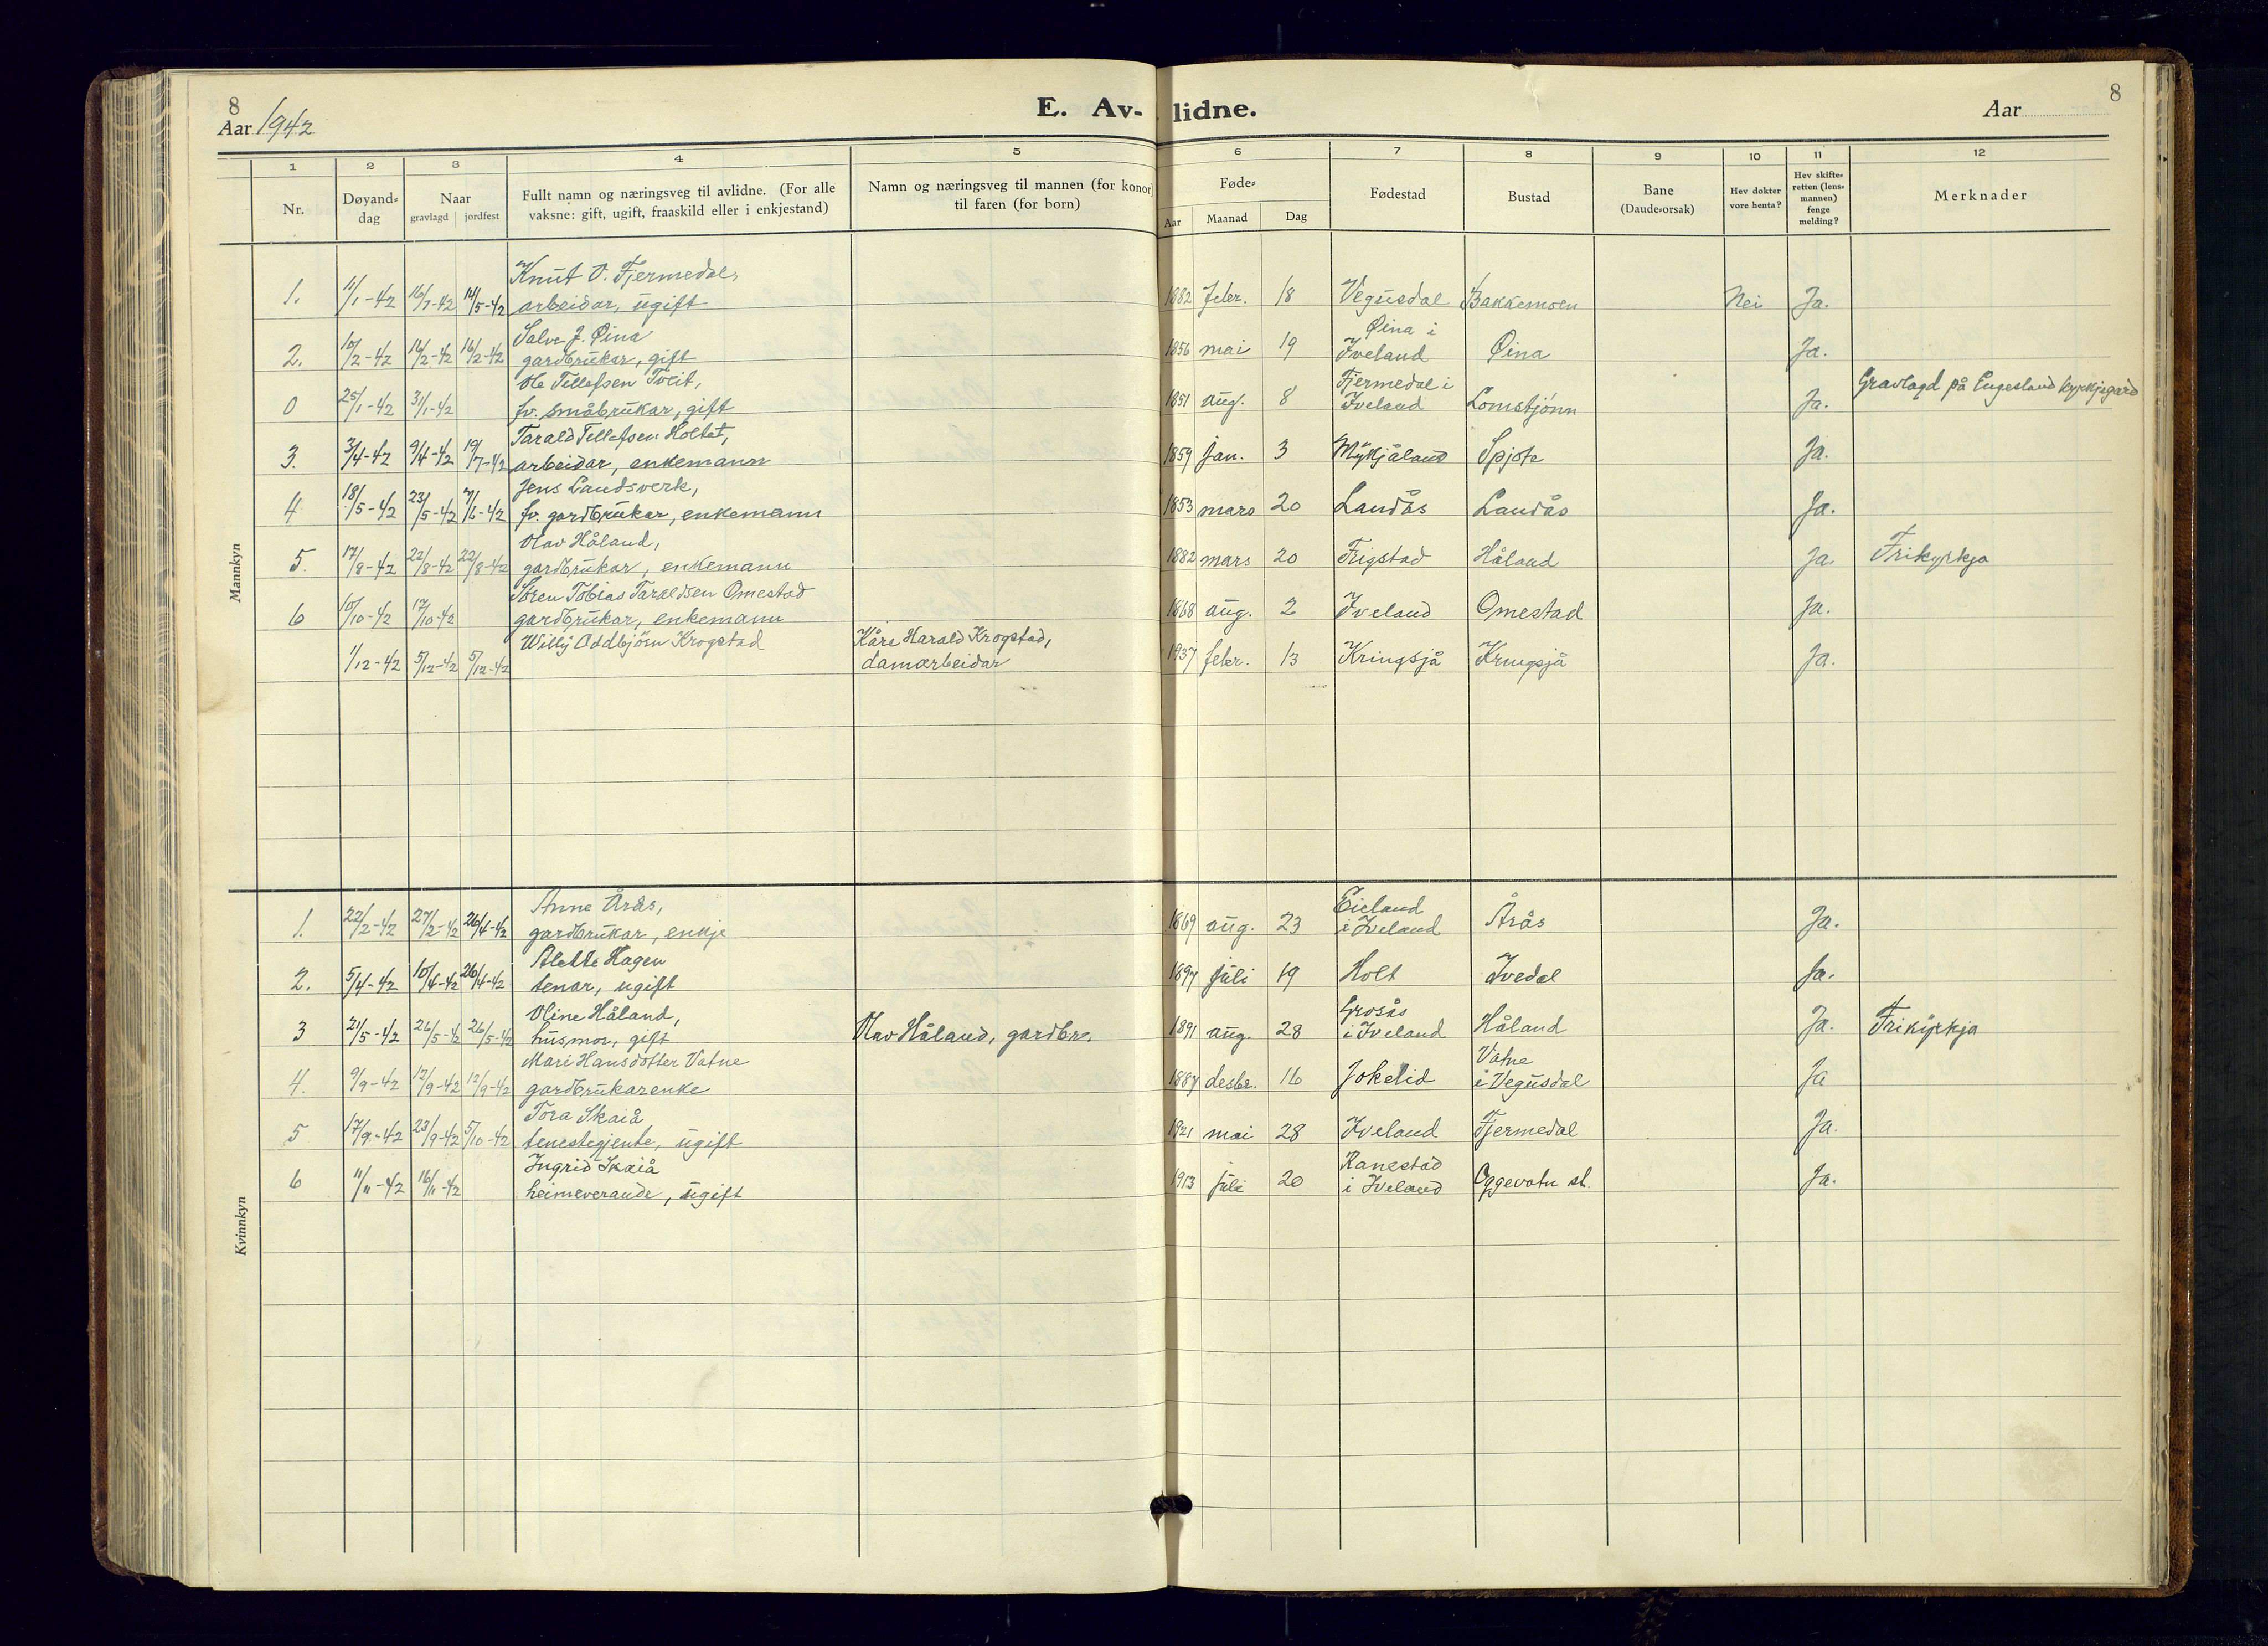 8
Aar 1942
E. Av-lidne.
Aar
8
1 2 3 4 5 6 7 8 9 10 11 12
Nr.
Døyand-dag
Naar gravlagd jordfest
Fullt namn og næringsveg til avlidne. (For alle vaksne: gift, ugift, fraaskild eller i enkjestand)
Namn og næringsveg til mannen (for konor) til faren (for born)
Føde- Aar Maanad Dag
Fødestad
Bustad
Bane (Daude-orsak)
Hev dokter vore henta?
Hev skifte-retten (lens-mannen) fenge melding?
Merknader
Mannkyn
Knut O. Fjermedal,
1. 11/1-42 16/1-42 14/5-42 arbeidar, ugift 1882 febr. 18 Vegusdal Bakkemoen Nei Ja.
Salve J. Øina Øina i
2. 10/2-42 16/2-42 16/2-42 gardbrukar, gift 1856 mai 19 Iveland Øina Ja.
Ole Tellefsen Tveit, Fjermedal i Gravlagd på Engesland kyrkjegard
0 25/1-42 31/1-42 fv. småbrukar, gift 1851 aug. 8 Iveland Lomstjønn Ja.
Tarald Tellefsen Holtet,
3. 3/4-42 9/4-42 19/7-42 arbeidar, enkemann 1859 jan. 3 Mykjåland Spjote Ja.
Jens Landsverk,
4 18/5-42 23/5-42 7/6-42 fv. gardbrukar, enkemann 1853 mars 20 Landås Landås Ja.
Olav Håland,
5. 17/8-42 22/8-42 22/8-42 gardbrukar, enkemann 1882 mars 20 Frigstad Håland Ja. Frikyrkja
Søren Tobias Taraldsen Omestad
6 10/10-42 17/10-42 gardbrukar, enkemann 1868 aug. 2 Iveland Omestad Ja.
Willy Oddbjörn Krogstad Kåre Harald Krogstad,
1/12-42 5/12-42 5/12-42 damarbeidar 1937 febr. 13 Kringsjå Kringsjå Ja.
Kvinnkyn
Anne Årås, Eieland
1. 22/2-42 27/2-42 26/4-42 gardbrukar, enkje 1869 aug. 23 i Iveland Årås Ja.
Alette Hagen
2. 5/4-42 10/4-42 26/4-42 tenar, ugift 1897 juli 19 Holt Ivedal Ja.
Oline Håland, Grosås
3 21/5-42 26/5-42 26/5-42 husmor, gift Olav Håland, gardbr. 1891 aug. 28 i Iveland Håland Ja. Frikyrkja
Mari Hansdotter Vatne Vatne
4. 9/9-42 12/9-42 12/9-42 gardbrukarenke 1887 desbr. 16 Jokelid i Vegusdal Ja
Tora Skaiå
5 17/9-42 23/9-42 5/10-42 tenestegjente, ugift 1921 mai 28 Iveland Fjermedal Ja.
Ingrid Skaiå Ranestad
6 11/11-42 16/11-42 heimeverande, ugift 1913 juli 20 i Iveland Oggevatn st. Ja.